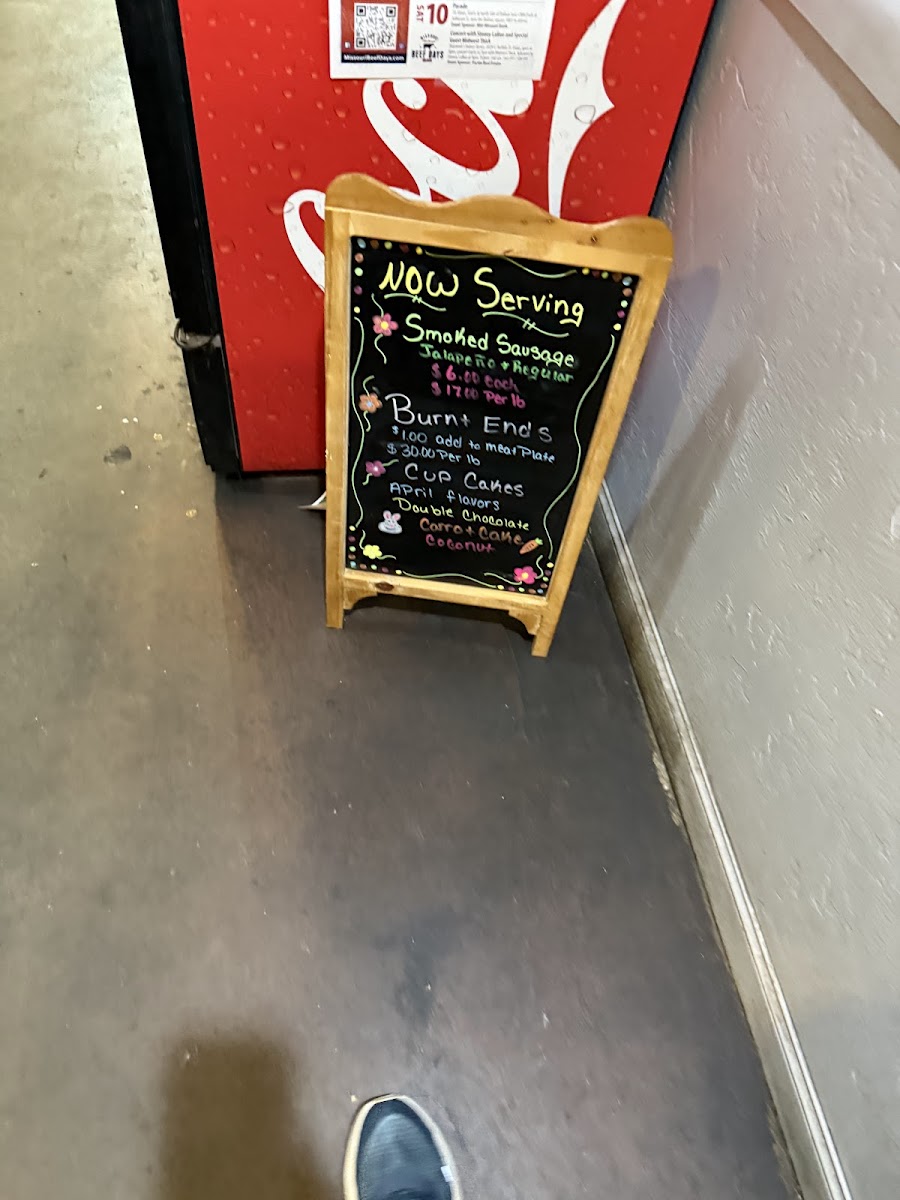 MissouriBeefDays.com
SAT 10
BEEF DAYS
Parade
NOW Serving
Smoked Sausage
Jalapeño + Regular
$6.00 each
$17.00 Per lb
Burnt Ends
$1.00 add to meat Plate
$30.00 Per lb
Cup Cakes
April flavors
Double Chocolate
Carrot Cake
Coconut